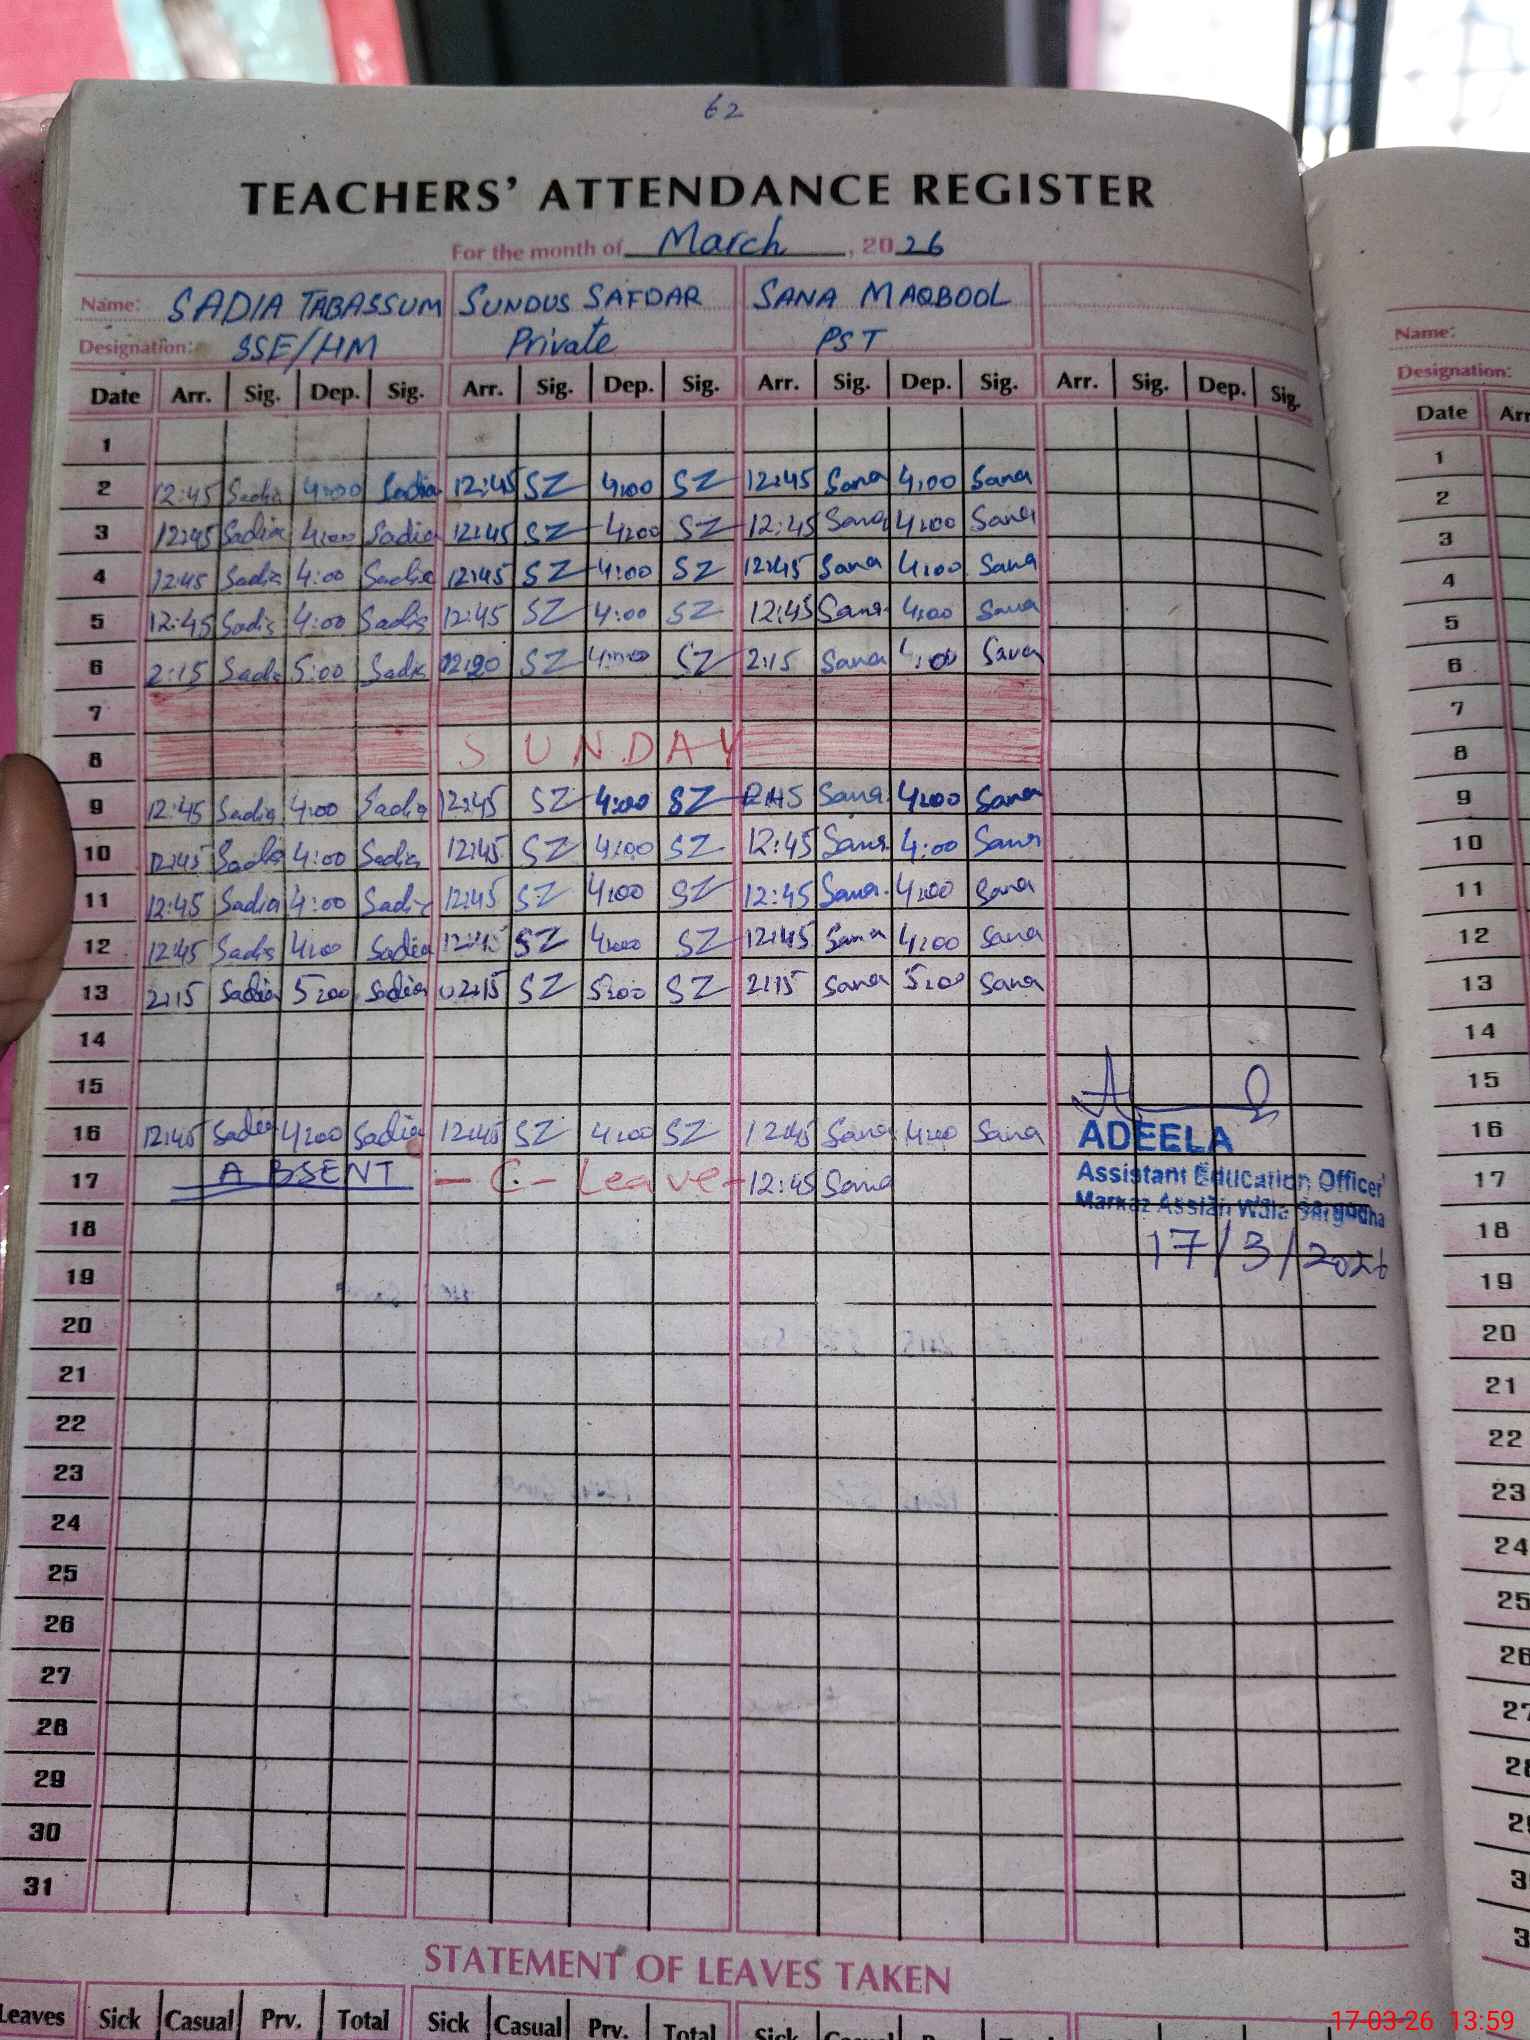 62
TEACHERS' ATTENDANCE REGISTER
For the month of March, 2026
Name: SADIA TABASSUM SUNDUS SAFDAR SANA MAQBOOL
Designation: SSE/HM Private PST
Date Arr. Sig. Dep. Sig. Arr. Sig. Dep. Sig. Arr. Sig. Dep. Sig. Arr. Sig. Dep. Sig.
1
2 12:45 Sadia 4:00 Sadia 12:45 SZ 4:00 SZ 12:45 Sana 4:00 Sana
3 12:45 Sadia 4:00 Sadia 12:45 SZ 4:00 SZ 12:45 Sana 4:00 Sana
4 12:45 Sadia 4:00 Sadia 12:45 SZ 4:00 SZ 12:45 Sana 4:00 Sana
5 12:45 Sadia 4:00 Sadia 12:45 SZ 4:00 SZ 12:45 Sana 4:00 Sana
6 2:15 Sadia 5:00 Sadia SZ SZ 2:15 Sana Sana
7
8 SUNDAY
9 12:45 Sadia 4:00 Sadia 12:45 SZ 4:00 SZ Sana 4:00 Sana
10 12:45 Sadia 4:00 Sadia 12:45 SZ 4:00 SZ 12:45 Sana 4:00 Sana
11 12:45 Sadia 4:00 Sadia 12:45 SZ 4:00 SZ 12:45 Sana 4:00 Sana
12 12:45 Sadia 4:00 Sadia 12:45 SZ 4:00 SZ 12:45 Sana 4:00 Sana
13 2:15 Sadia 5:00 Sadia 02:15 SZ 5:00 SZ 2:15 Sana 5:00 Sana
14
15
16 12:45 Sadia 4:00 Sadia 12:45 SZ 4:00 SZ 12:45 Sana 4:00 Sana
ADEELA
17 ABSENT - C - Leave - 12:45 Sana
Assistant Education Officer
Markaz Assian Wala Sargodha
18
17/3/2026
19
20
21
22
23
24
25
26
27
28
29
30
31
STATEMENT OF LEAVES TAKEN
Leaves Sick Casual Prv. Total Sick Casual Prv. Total Sick Casual
Name:
Designation:
Date Arr
1
2
3
4
5
6
7
8
9
10
11
12
13
14
15
16
17
18
19
20
21
22
23
24
25
26
27
28
17-03-26 13:59